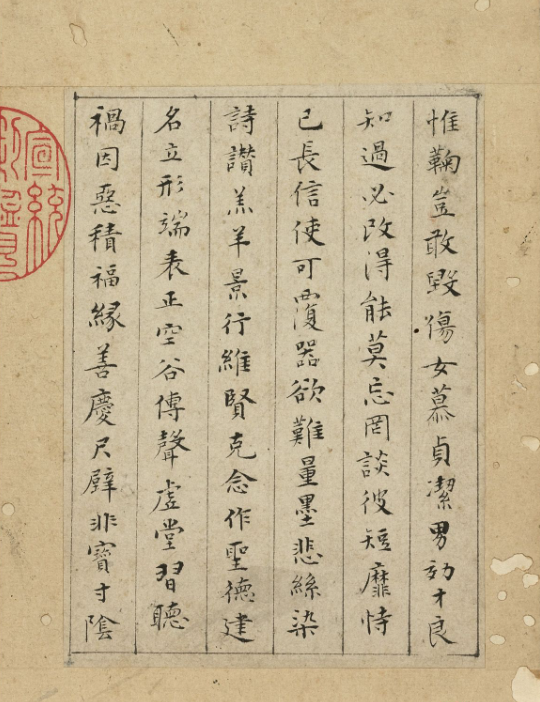 惟鞠豈敢毀傷女慕貞潔男効才良
知過必改得能莫忘罔談彼短靡恃
己長信使可覆器欲難量墨悲絲染
詩讚羔羊景行維賢克念作聖德建
名立形端表正空谷傳聲虛堂習聽
禍因惡積福緣善慶尺璧非寶寸陰
宣統